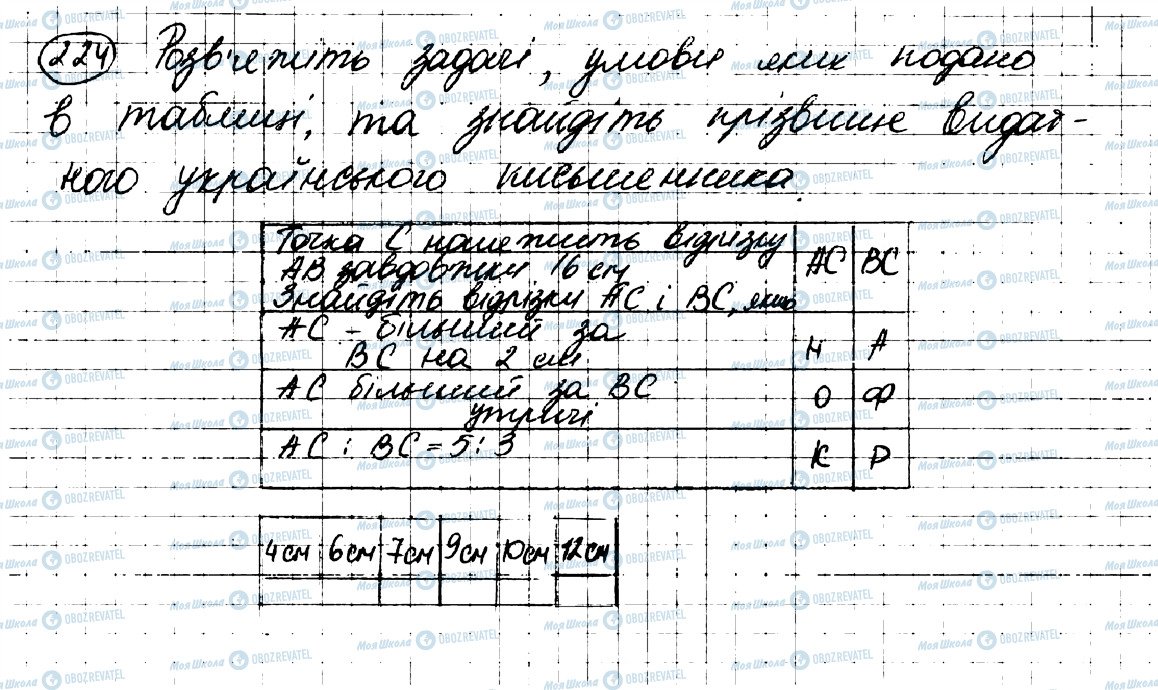 224 Розв'яжіть задачі, умови яких подано
в таблиці, та знайдіть прізвище видат-
ного українського письменника.
Точка С належить відрізку
АВ завдовжки 16 см
Знайдіть відрізки АС і ВС, якщо
АС ВС
АС - більший за
ВС на 2 см
Н А
АС більший за ВС
утричі
О Ф
АС : ВС = 5 : 3
К Р
4 см 6 см 7 см 9 см 10 см 12 см